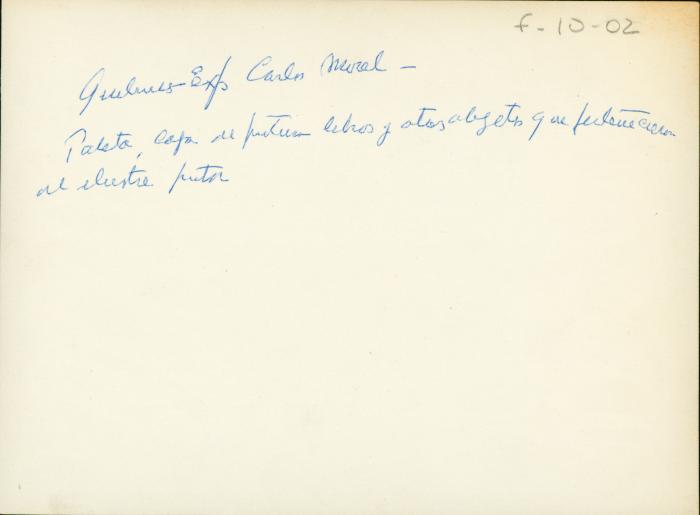 F-10-02
Quilmes - Exp Carlos Moral -
Paleta, caja de pintura libros y otros objetos que pertenecieron
al ilustre pintor